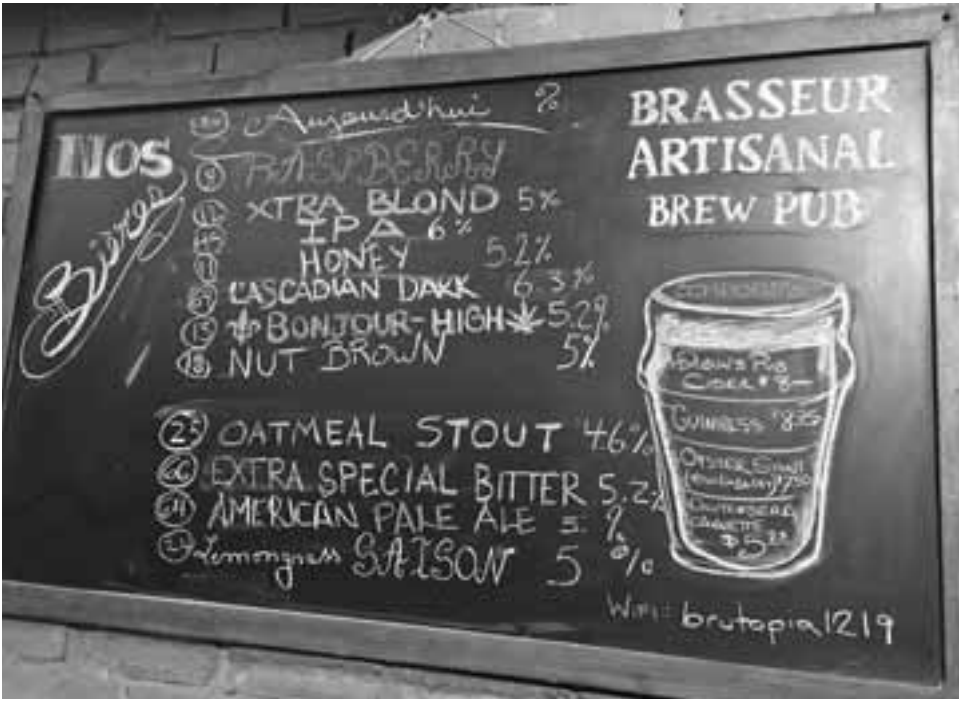 Nos
Bières
IBU Aujourd'hui %
9 RASPBERRY
XTRA BLOND 5%
IPA 6%
HONEY 5.2%
CASCADIAN DARK 6.3%
15 BONJOUR-HIGH 5.2%
18 NUT BROWN 5%
25 OATMEAL STOUT 4.6%
66 EXTRA SPECIAL BITTER 5.2%
AMERICAN PALE ALE 5. %
Lemongrass SAISON 5 %
BRASSEUR
ARTISANAL
BREW PUB
CIDER $8—
GUINNESS $8.25
OYSTER
$7.50
CANETTE
$5.
WiFi: brutopia1219